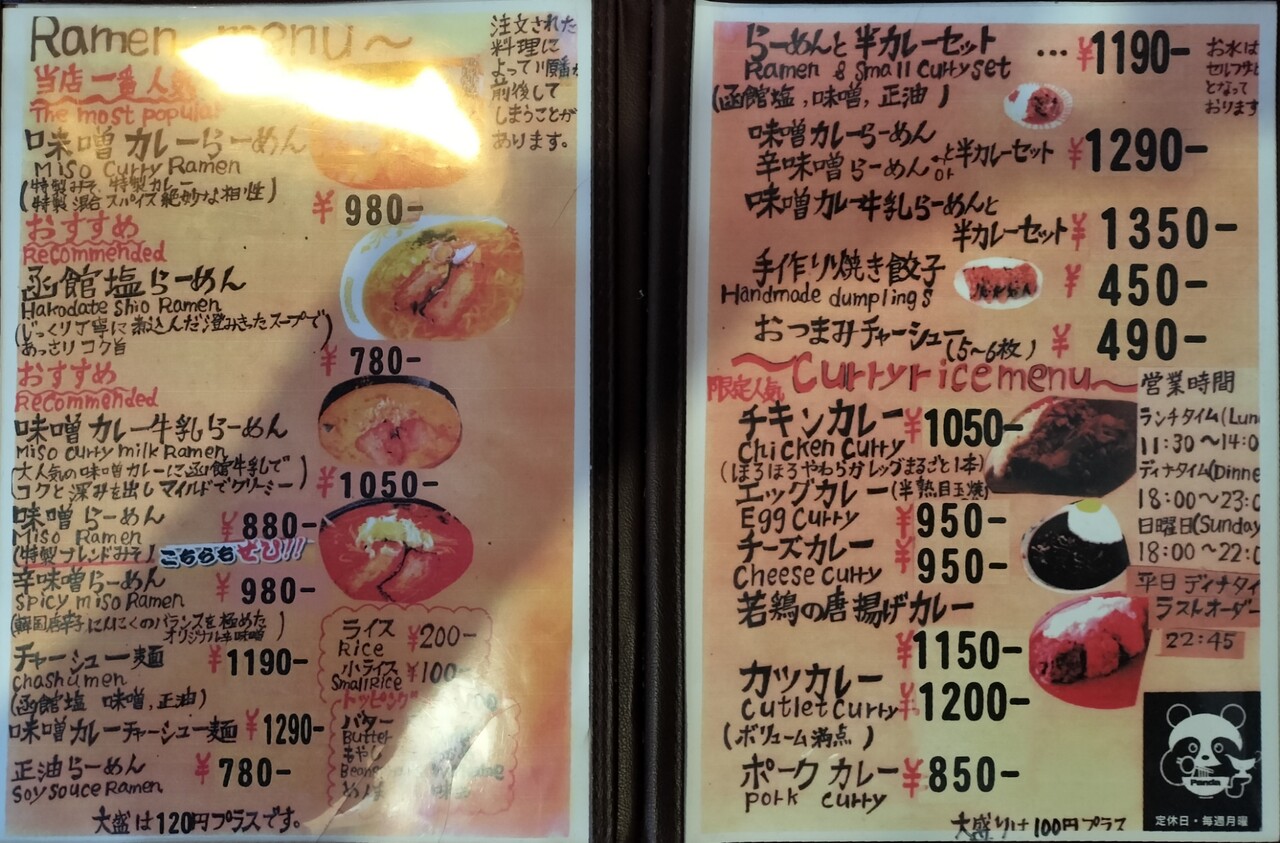 Ramen menu～
注文された
料理に
よって順番が
前後して
しまうことが
あります。
当店一番人
The most popular
味噌カレーらーめん
Miso Curry Ramen
(特製みそ、特製カレー
特製混合スパイス絶妙な相性)
¥980-
おすすめ
Recommended
函館塩らーめん
Hakodate Shio Ramen
(じっくり丁寧に煮込んだ澄みきったスープで)
あっさりコク旨
¥780-
おすすめ
Recommended
味噌カレー牛乳らーめん
Miso curry milk Ramen
(大人気の味噌カレーに函館牛乳で
コクと深みを出しマイルドでクリーミー)
¥1050-
味噌らーめん
Miso Ramen
¥880-
(特製ブレンドみそ)
こちらもぜひ!!
辛味噌らーめん
Spicy miso Ramen
¥980-
(韓国唐辛子にんにくのバランスを極めた
オリジナル辛味噌)
チャーシュー麺
Chashumen
¥1190-
(函館塩 味噌,正油)
味噌カレーチャーシュー麺 ¥1290-
正油らーめん
Soy Souce Ramen
¥780-
大盛は120円プラスです。
ライス ¥200-
Rice
小ライス ¥100-
Small Rice
トッピング
バター
Butter
もやし
らーめんと半カレーセット … ¥1190-
Ramen & Small Curry set
(函館塩,味噌,正油)
お水は
セルフサ
となって
おります
味噌カレーらーめん
辛味噌らーめん と or 半カレーセット ¥1290-
味噌カレー牛乳らーめんと
半カレーセット ¥1350-
手作り焼き餃子
Handmade dumplings
¥450-
おつまみチャーシュー
(5～6枚)
¥490-
～Curry rice menu～
限定人気
チキンカレー ¥1050-
Chicken Curry
(ほろほろやわらかレッグまるごと1本)
エッグカレー(半熟目玉焼
Egg Curry ¥950-
チーズカレー ¥950-
Cheese Curry
若鶏の唐揚げカレー
¥1150-
カツカレー
Cutlet Curry ¥1200-
(ボリューム満点)
ポークカレー ¥850-
Pork Curry
大盛りは100円プラス
営業時間
ランチタイム(Lun
11:30～14:0
ディナタイム(Dinne
18:00～23:0
日曜日(Sunday
18:00～22:0
平日ディナタイ
ラストオーダー
22:45
定休日・毎週月曜